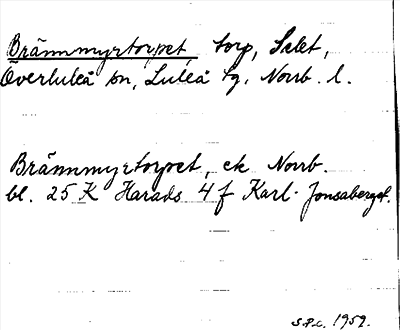 Brännmyrtorpet, torp, Selet,
Överluleå sn, Luleå tg. Norrb. l.
Brännmyrtorpet, ek Norrb.
bl. 25 K Harads 4 f Karl-Jonsaberget.
S.P.L. 1959.